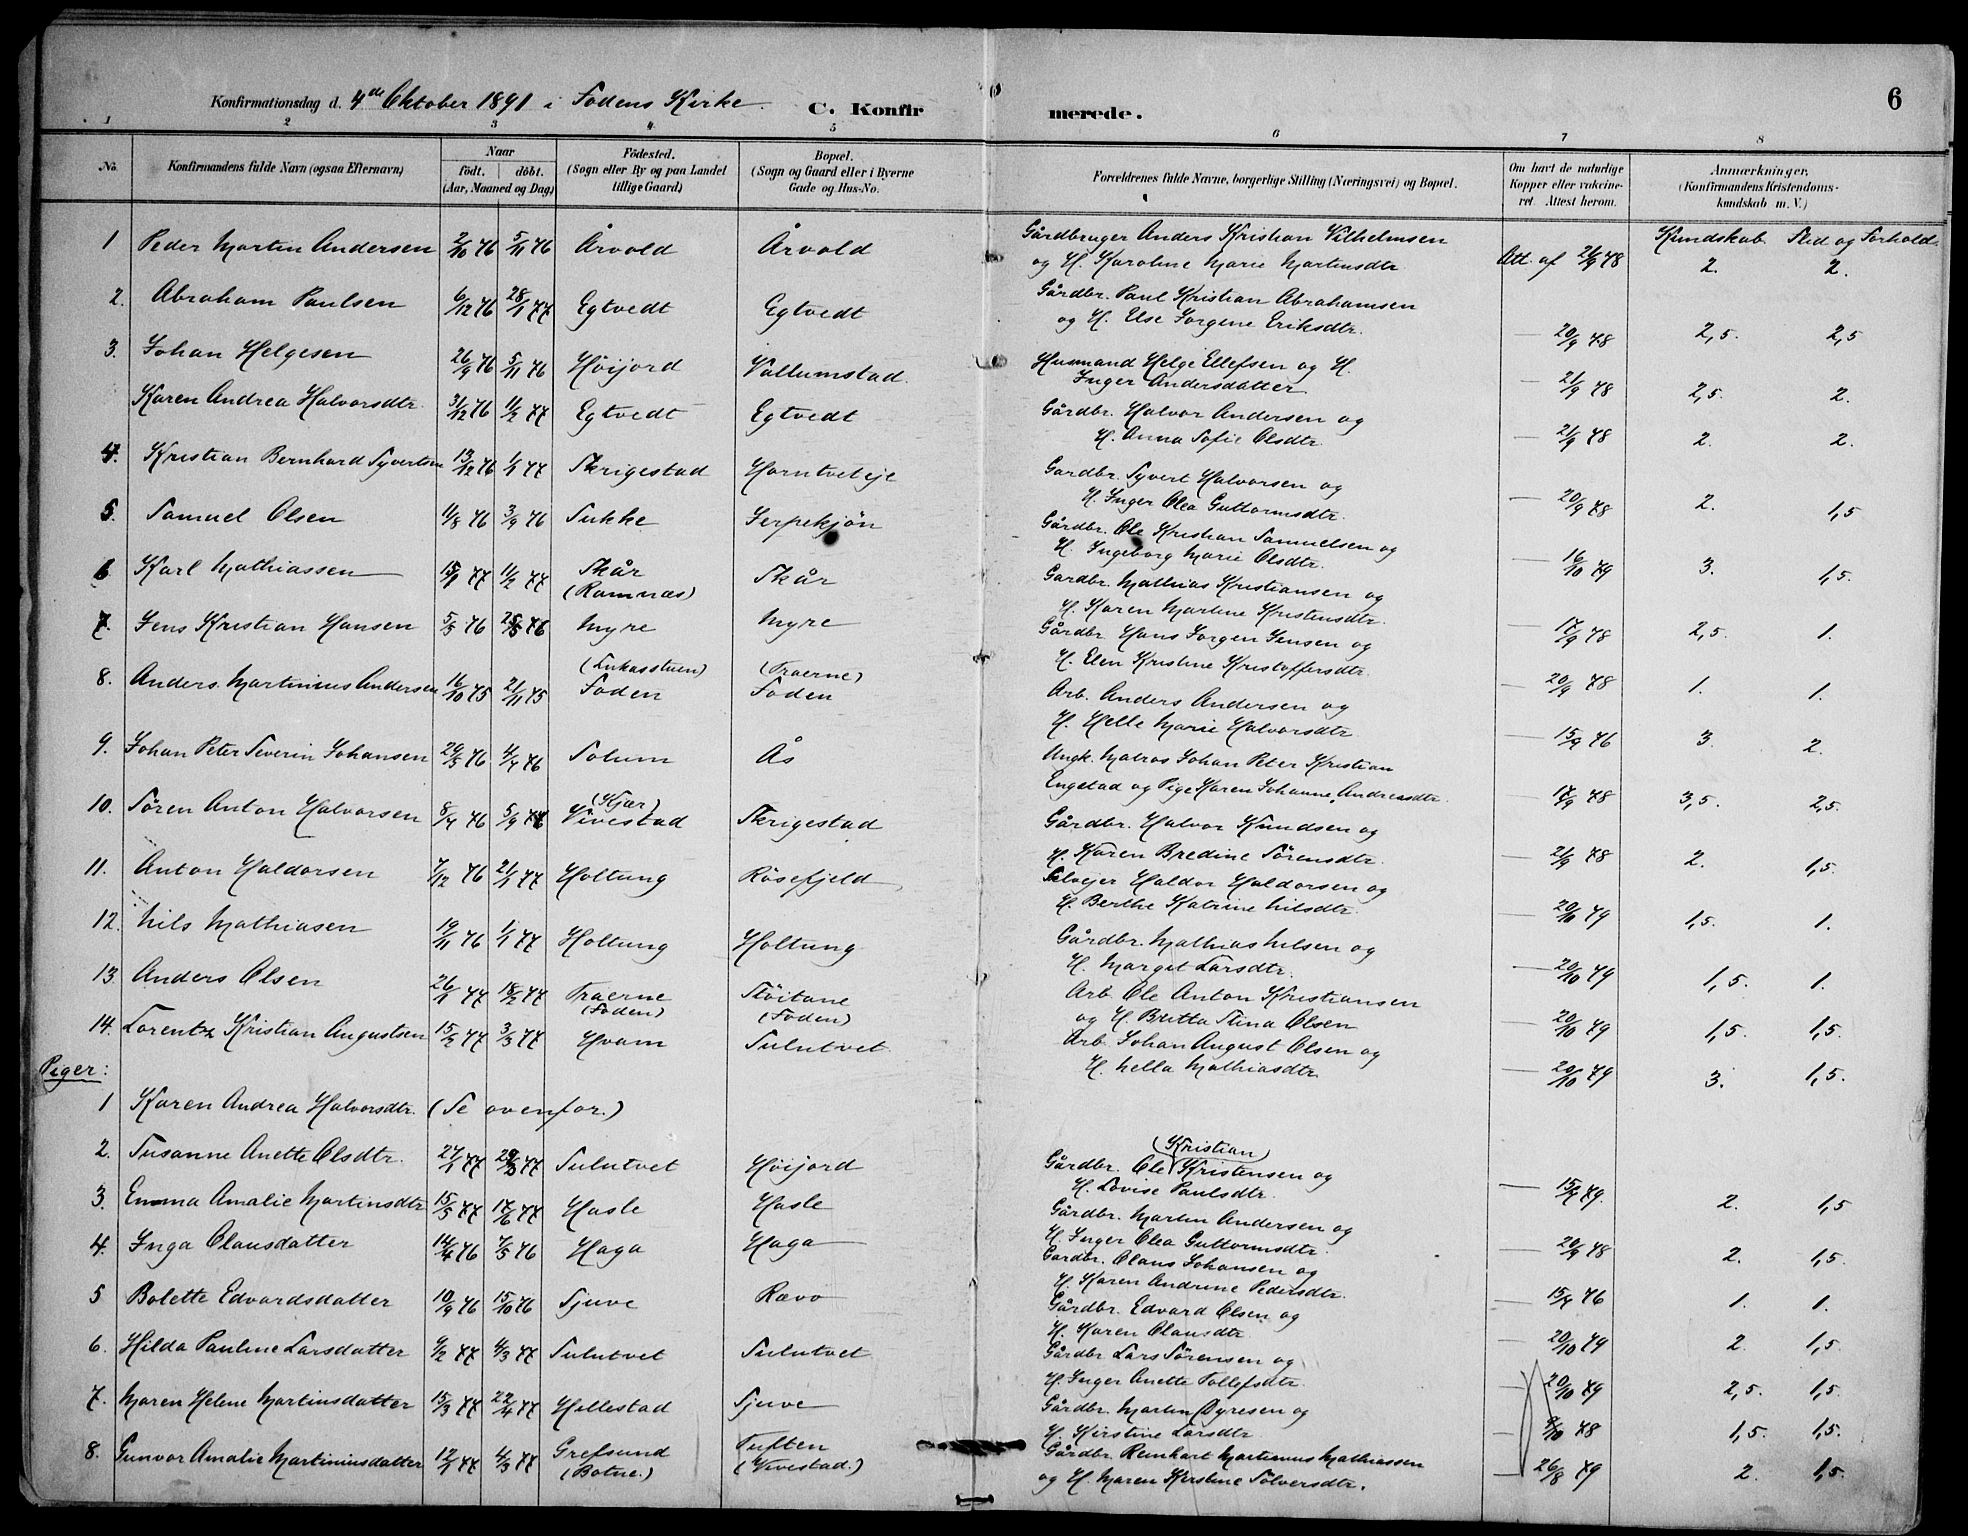 Konfirmationsdag d. 4de Oktober 1891 i Fodens Kirke. C. Konfirmerede. 6
1 2 3 4 5 6 7 8
No. Konfirmandens fulde Navn (ogsaa Efternavn) Naar födt. döbt. (Aar, Maaned og Dag) Födested. (Sogn eller By og paa Landet tillige Gaard) Bopæl. (Sogn og Gaard eller i Byerne Gade og Hus-No. Forældrenes fulde Navne, borgerlige Stilling (Næringsvei) og Bopæl. Om havt de naturlige Kopper eller vakcineret. Attest herom. Anmærkninger, (Konfirmandens Kristendomskundskab m. V.)
Kundskab Flid og Forhold
1 Peder Martin Andersen 2/10 76 5/11 76 Årvold Årvold Gårdbruger Anders Kristian Vilhelmsen og H. Karoline Marie Martinsdtr. Att. af 21/9 78 2. 2.
2. Abraham Paulsen 6/12 76 28/1 77 Egtvedt Egtvedt Gårdbr. Paul Kristian Abrahamsen og H. Else Jorgine Eriksdtr. — 20/9 78 2,5. 2,5
3. Johan Helgesen 26/9 76 5/11 76 Höijord Vallumstad. Husmand Helge Ellefsen og H. Inger Andersdatter — 21/9 78 2,5. 2.
Karen Andrea Halvorsdtr. 31/12 76 11/2 77 Egtvedt Egtvedt Gårdbr. Halvor Andersen og H. Anna Sofie Olsdtr. — 21/9 78 2. 2.
4. Kristian Bernhard Syvertsen 13/12 76 1/1 77 Skrigestad Horntveteje Gardbr. Syvert Halvorsen og H. Inger Olea Guttormsdtr. — 20/9 78 2. 1,5
5. Samuel Olsen 11/8 76 3/9 76 Sukke Jerpekjön Gårdbr. Ole Kristian Samuelsen og H. Ingeborg Marie Olsdtr. — 16/10 79 3. 1,5.
6 Karl Mathiassen 15/1 77 11/2 77 Skår (Ramnæs) Skår Gardbr. Mathias Kristiansen og H. Karen Martine Kristensdtr. — 17/9 78 2,5. 1.
7. Jens Kristian Hansen 5/5 76 25/5 76 Myre Myre Gårdbr. Hans Jorgen Jensen og H. Elen Kristine Kristoffersdtr. — 20/9 78 1. 1.
8. Anders Martinius Andersen 16/10 75 21/11 75 (Lukasstuen) Foden (Traerne) Foden Arb. Anders Andersen og H. Helle Marie Halvorsdtr. — 15/9 76 3. 2.
9. Johan Peter Severin Johansen 20/3 76 4/4 76 Solum Ås Ungk. Matros Johan Peter Kristian Engstad og Pige Karen Johanne Andreasdtr. — 17/9 78 3,5. 2,5.
10. Sören Anton Halvorsen 8/7 76 5/9 76 (Kjær) Vivestad Skrigestad Gårdbr. Halvor Knudsen og H. Karen Bredine Sörensdtr. — 21/9 78 2. 1,5.
11. Anton Haldorsen 7/12 76 21/1 77 Holtung Rösefjeld Selvejer Haldor Haldorsen og H. Berthe Katrine Nilsdtr. — 20/10 79 1,5. 1.
12. Nils Mathiasen 19/11 76 1/1 77 Holtung Holtung Gårdbr. Mathias Nilsen og H. Margit Larsdtr. — 20/10 79 1,5. 1.
13. Anders Olsen 26/1 77 18/2 77 Traerne (Foden) Stöitane (Foden) Arb. Ole Anton Kristiansen og H. Britta Stina Olsen — 20/10 79 1,5. 1,5.
14. Lorentz Kristian Augustsen 15/2 77 3/3 77 Hvam Sulutvet. Arb. Johan August Olsen og H. Nella Mathiasdtr. — 20/10 79 3. 1,5.
Piger:
1 Karen Andrea Halvorsdtr. (Se ovenfor.)
2. Susanne Anette Olsdtr. 27/1 77 29/3 77 Sulutvet Höijord Gårdbr. Ole (Kristian) Kristensen og H. Lovise Paulsdtr. — 15/9 79. 2. 1,5
3. Emma Amalie Martinsdtr 15/5 77 17/6 77 Hasle Hasle Gårdbr. Martin Andersen og H. Inger Olea Guttormsdtr. — 20/9 78 2. 1,5.
4. Inga Olausdatter 14/4 76 7/5 76 Haga Haga Gardbr. Olaus Johansen og H. Karen Andrine Pedersdtr. — 15/9 76 1. 1.
5 Bolette Edvardsdatter 10/9 76 15/10 76 Sjuve Rævo Gårdbr. Edvard Olsen og H. Karen Olausdtr. — 20/10 79 2. 1,5.
6. Hilda Pauline Larsdatter 9/2 77 4/3 77 Sulutvet Sulutvet Gårdbr Lars Sörensen og H. Inger Anette Tollefsdtr. — 20/10 79 2,5. 1,5.
7. Maren Helene Martinsdatter 15/3 77 22/4 77 Hillestad Sjuve Gårdbr. Martin Dyresen og H. Kirstine Larsdtr. — 8/10 78 1,5. 1,5.
8. Gunvor Amalie Martiniusdatter 12/1 77 4/3 77 Grefsund (Botne.) Tuften (Vivestad.) Gårdbr. Reinhart Martinius Mathiassen og H. Maren Kirstine Sölversdtr. — 26/8 79 2. 1,5.